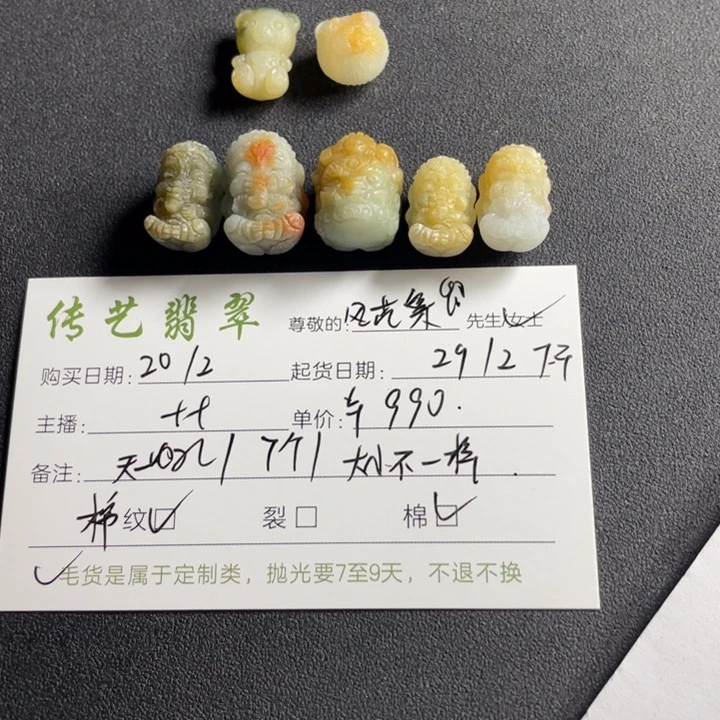 传艺翡翠 尊敬的: 先生/女士
购买日期: 20/2 起货日期: 29/2
主播: 单价: 990.
备注: 7个 大小不一样.
棉纹 裂 棉
毛货是属于定制类，抛光要7至9天，不退不换